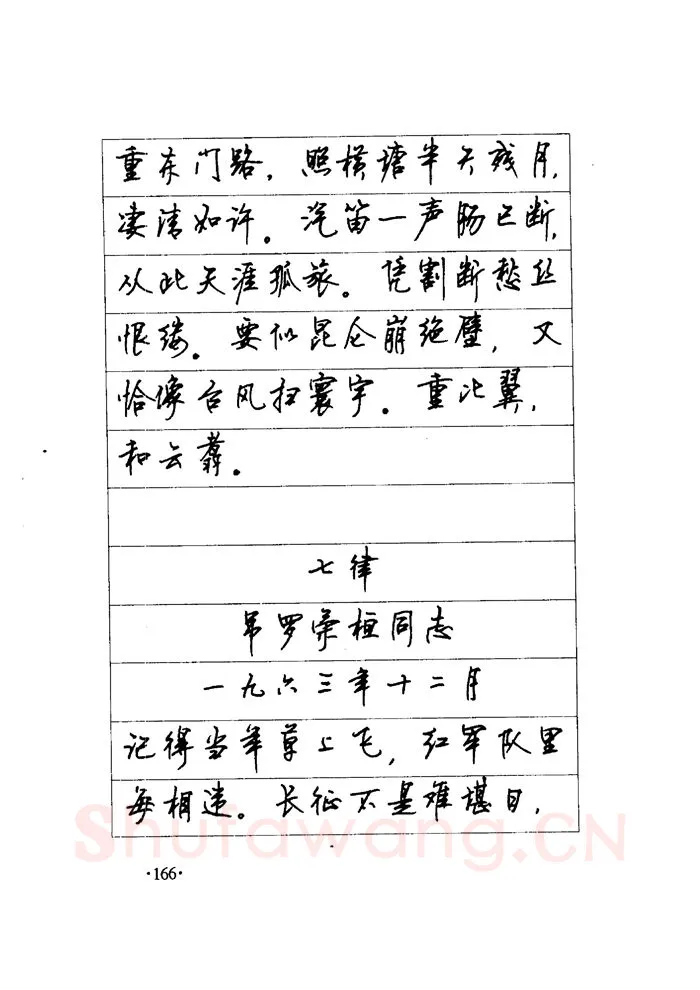 重东门路，照横塘半天残月，
凄清如许。汽笛一声肠已断，
从此天涯孤旅。凭割断愁丝
恨缕。要似昆仑崩绝壁，又
恰像台风扫寰宇。重比翼，
和云翥。
七律
吊罗荣桓同志
一九六三年十二月
记得当年草上飞，红军队里
每相违。长征不是难堪日，
Shufawang.CN
·166·